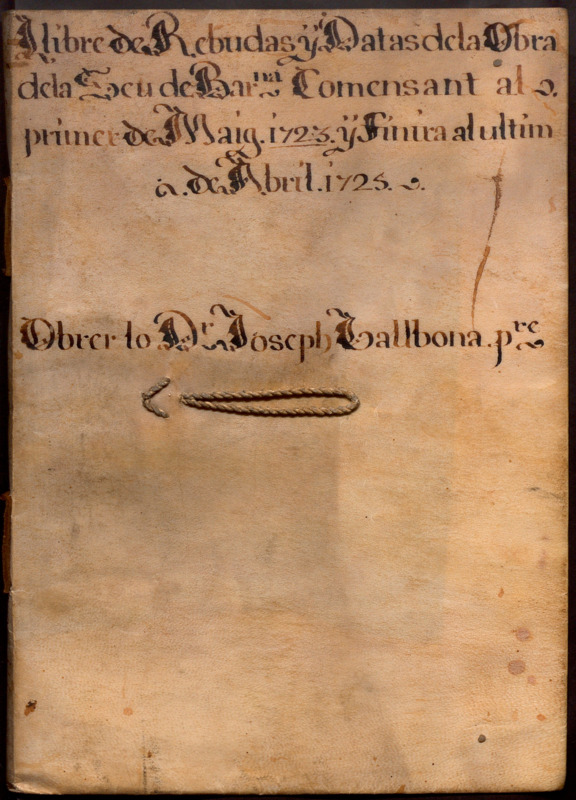 Llibre de Rebudas y Datas de la Obra
dela Seu de Barna Comensant al
primer de Maig. 1723. y Finira al ultim
a. de Abril. 1725.
Obrer lo Dr. Joseph Gallbona. pre